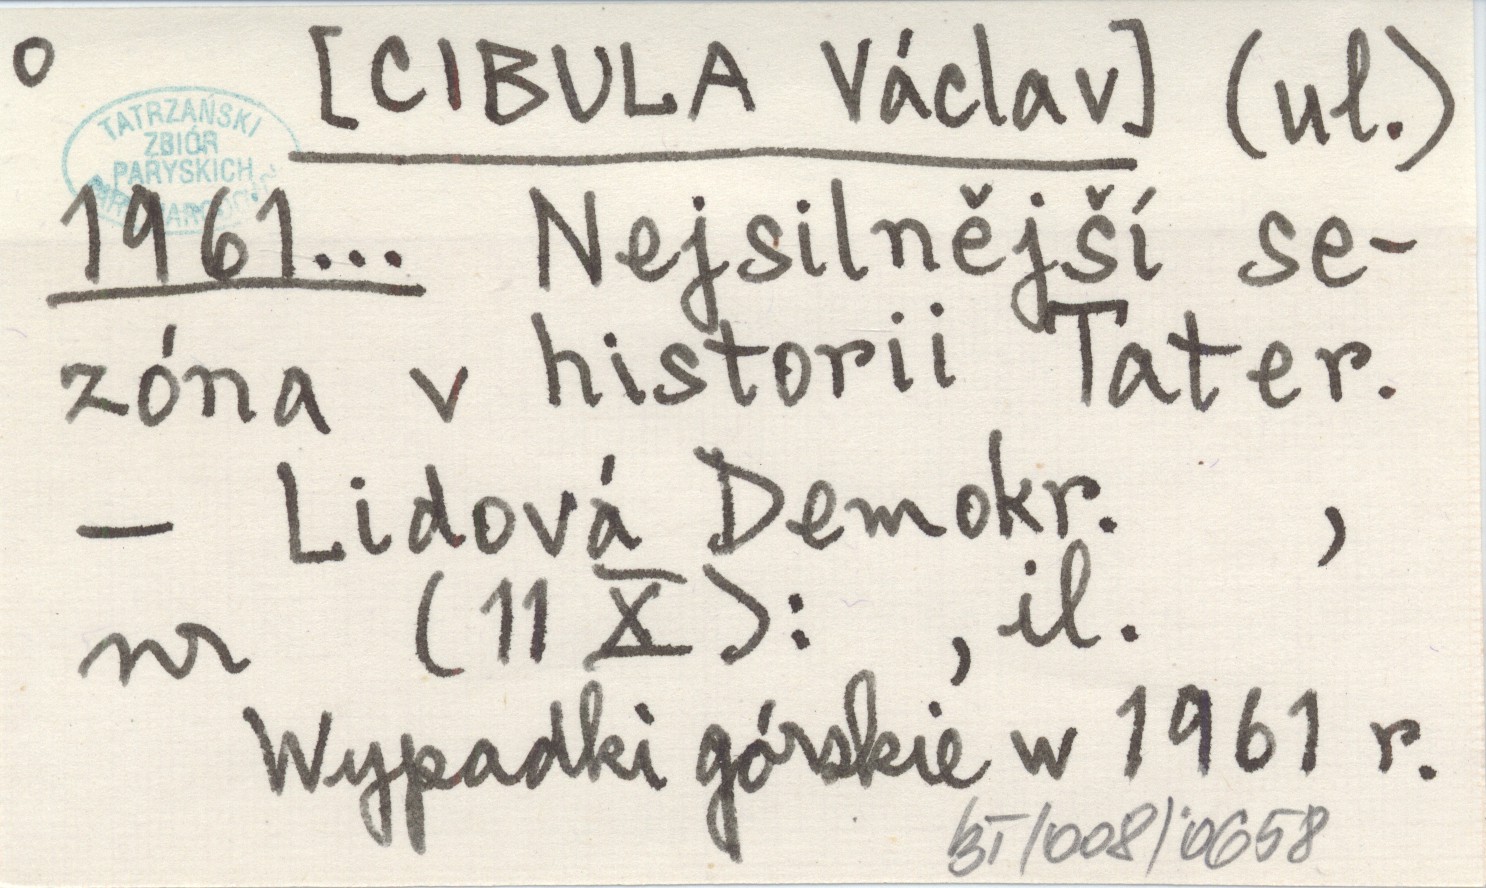 o [CIBULA Václav] (ul.)
TATRZAŃSKI
ZBIÓR
PARYSKICH
1961... Nejsilnější se-
zóna v historii Tater.
— Lidová Demokr. ,
nr (11 X): , il.
Wypadki górskie w 1961 r.
BT/008/0658